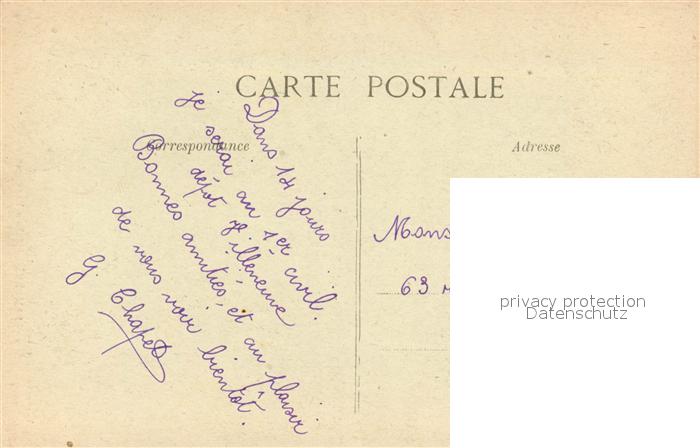 CARTE POSTALE
Correspondance
Adresse
Dans 14 jours
je serai au 1er civil.
dépot
Bonnes amitiés, et au plaisir
de vous voir bientôt.
G. Chapet
Mons
63
privacy protection
Datenschutz